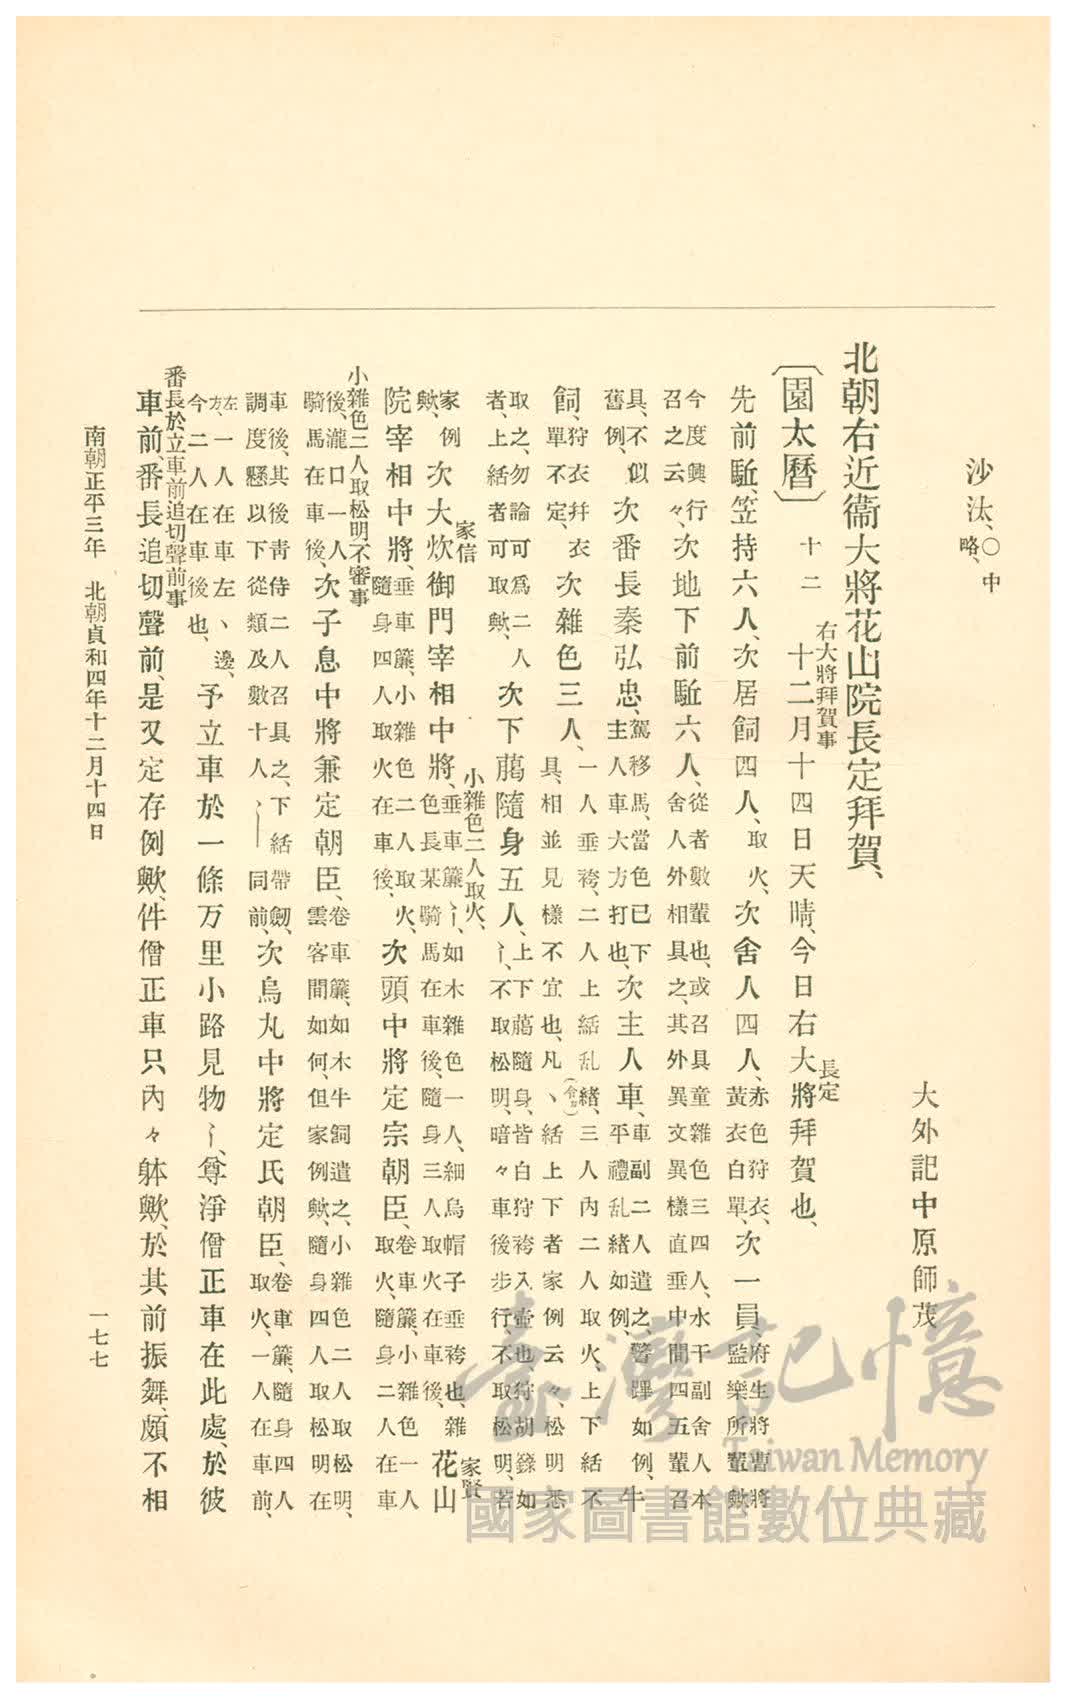 沙汰、○中略、
大外記中原師茂
北朝右近衞大將花山院長定拜賀、
右大將拜賀事
長定
〔園太曆〕十二 十二月十四日天晴、今日右大將拜賀也、
先前駈、笠持六人、次居飼四人、取火、次舍人四人、赤色狩衣、黃衣白單、次一員、府生將曹將監樂所輩歟、
今度興行召之云々、次地下前駈六人、從者數輩也、或召具童雜色三四人、水干副舍人本舍人外相具之、其外異文異樣直垂中間四五輩召
具、不似舊例、次番長秦弘忠、駕移馬、當色已下主人車大方打也、次主人車、車副二人遣之、警蹕如例、平禮乱緒如例、牛
飼、狩衣幷衣單不定、次雜色三人、一人垂袴、二人上結乱緒、(令カ)三人內二人取火、上下結不具、相並見樣不宜也、凡ヽ結上下者家例云々、松明悉
取之、勿論可爲二人者、上結者可取歟、次下﨟隨身五人、上下﨟隨身、皆白狩袴入壺也、狩胡籙如〵、不取松明、暗々車後步行、不取松明、若
家信
小雜色三人取火、
家賢
家例歟、次大炊御門宰相中將、垂車簾〵、如木雜色一人、細烏帽子垂袴也、雜色長某騎馬在車後、隨身三人取火在車後、花山
院宰相中將、垂車簾、小雜色二人取火、隨身四人取火在車後、次頭中將定宗朝臣、卷車簾、小雜色一人取火、隨身二人在車
小雜色二人取松明、不審事
後、瀧口一人騎馬在車後、次子息中將兼定朝臣、卷車簾、如木牛飼遣之、小雜色二人取松明、雲客間如何、但家例歟、隨身四人取松明在
車後、其後靑侍二人召具之、下結帶劒、調度懸以下從類及數十人〵同前、次烏丸中將定氏朝臣、卷車簾、隨身四人取火、一人在車前、
左方、一人在車左ヽ邊、今二人在車後也、予立車於一條万里小路見物〵、尊淨僧正車在此處、於彼
番長於立車前追切聲前事
車前、番長追切聲前、是又定存例歟、件僧正車只內々躰歟、於其前振舞、頗不相
南朝正平三年 北朝貞和四年十二月十四日
一七七
臺灣記憶
Taiwan Memory
國家圖書館數位典藏